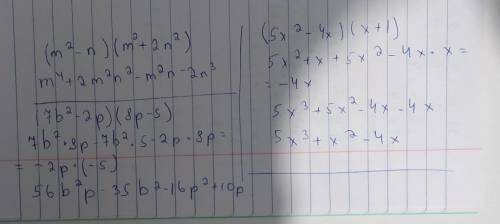 (m² - n) (m² + 2n²)
m⁴ + 2m²n² - m²n - 2n³
(7b² - 2p) (8p - 5)
7b² · 8p - 7b² · 5 - 2p · 8p =
= - 2p · (-5)
56b²p - 35b² - 16p² + 10p
(5x² - 4x) (x + 1)
5x² + x + 5x² - 4x · x =
= - 4x
5x³ + 5x² - 4x - 4x
5x³ + x² - 4x